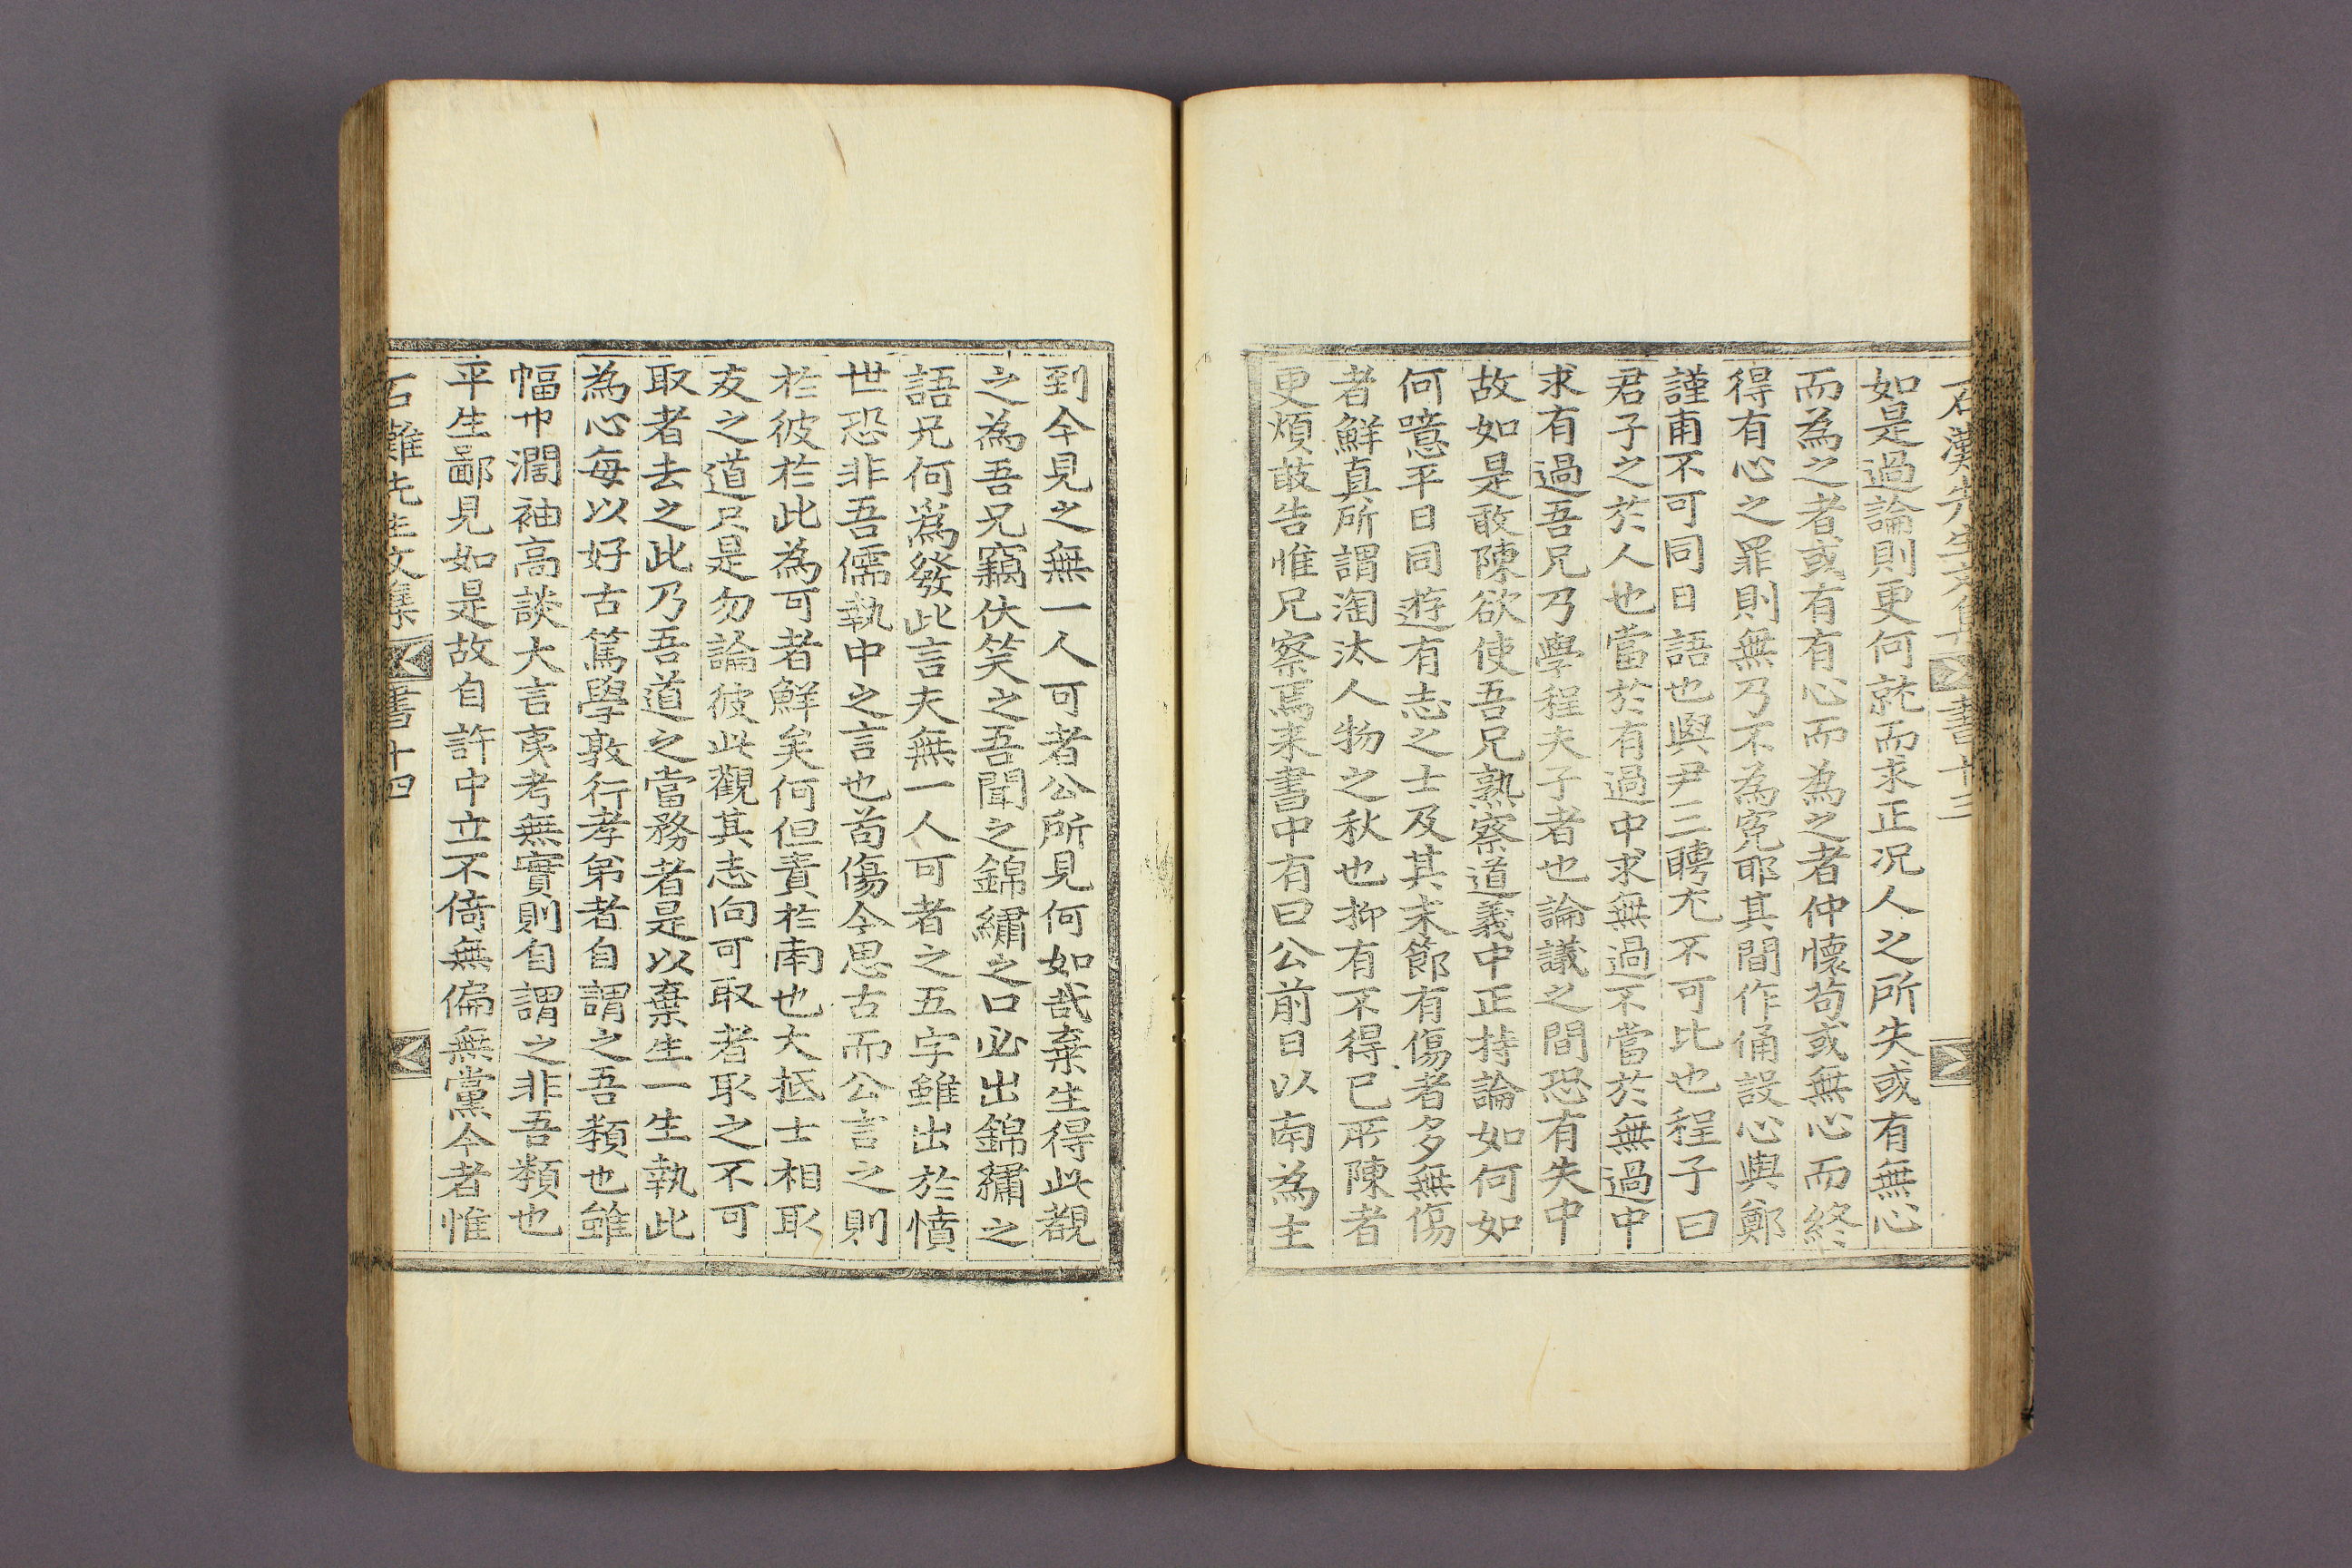 石灘先生文集 書 十三
如是過論則更何就而求正况人之所失或有無心
而為之者或有有心而為之者仲懷苟或無心而終
得有心之罪則無乃不為寃耶其間作俑設心與鄭
謹甫不可同日語也與尹三聘充不可比也程子曰
君子之於人也當於有過中求無過不當於無過中
求有過吾兄乃學程夫子者也論議之間恐有失中
故如是敢陳欲使吾兄熟察道義中正持論如何如
何噫平日同遊有志之士及其末節有傷者多無傷
者鮮真所謂淘汰人物之秋也抑有不得已所陳者
更煩敢告惟兄察焉来書中有曰公前日以南為主
到今見之無一人可者公所見何如哉棄生得此觀
之為吾兄竊伏笑之吾聞之錦繡之口必出錦繡之
語兄何為發此言夫無一人可者之五字雖出於憤
世恐非吾儒執中之言也苟傷今思古而公言之則
於彼於此為可者鮮矣何但責於南也大抵士相取
友之道只是勿論彼此觀其志向可取者取之不可
取者去之此乃吾道之當務者是以棄生一生執此
為心每以好古篤學敦行孝弟者自謂之吾類也雖
幅巾濶袖高談大言夷考無實則自謂之非吾類也
平生鄙見如是故自許中立不倚無偏無黨今者惟
石灘先生文集 書 十四